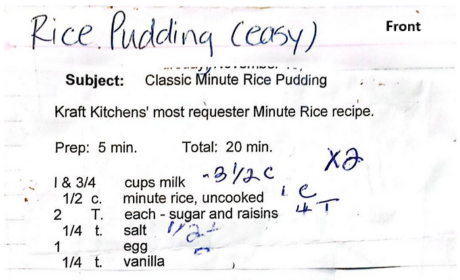 Rice Pudding (easy)
Front
Subject: Classic Minute Rice Pudding
Kraft Kitchens' most requester Minute Rice recipe.
Prep: 5 min. Total: 20 min. X2
1 & 3/4 cups milk - 3 1/2 c
1/2 c. minute rice, uncooked 1 c
2 T. each - sugar and raisins 4 T
1/4 t. salt 1/2 t
1 egg
1/4 t. vanilla